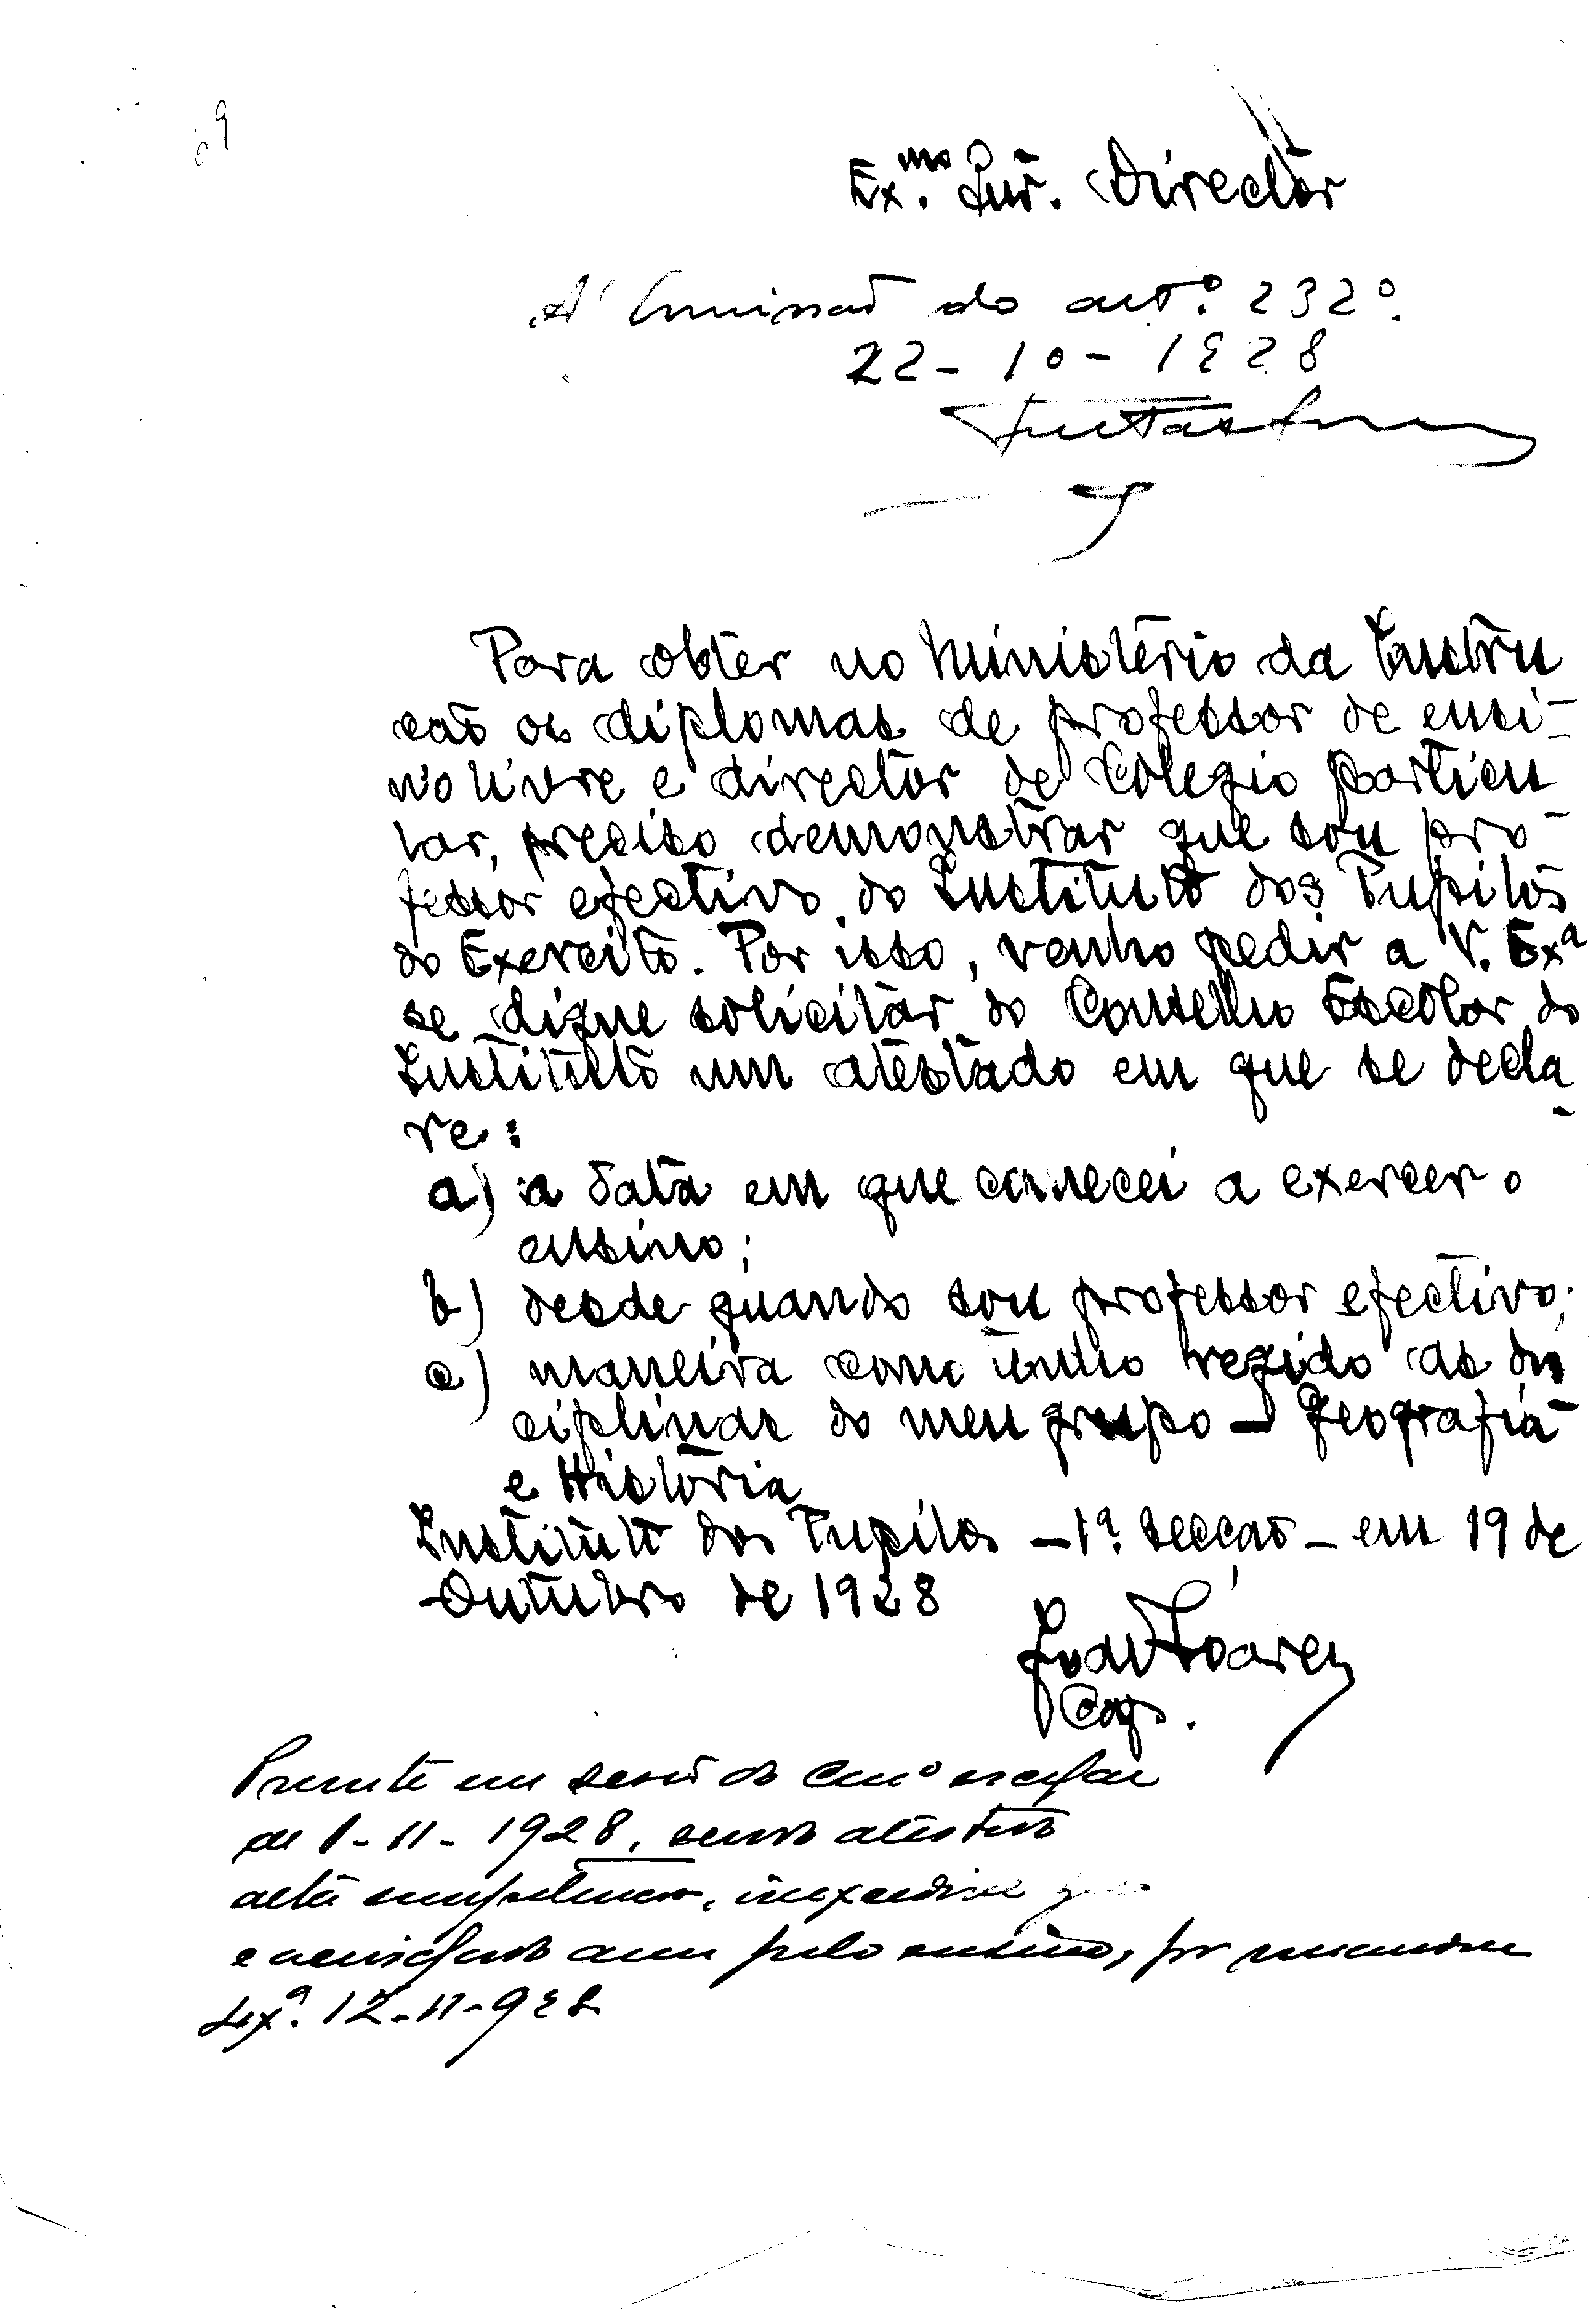 69
Ex.mo Snr. Director
A' Comissão do artº. 232º.
22 - 10 - 1928
Para obter no Ministério da Instru
ção os diplomas de professor de ensi-
no livre e director de Colegio particu
lar, preciso demonstrar que sou pro-
fessor efectivo do Instituto dos Pupilos
do Exercito. Por isso, venho pedir a V. Exª
se digne solicitar do Conselho Escolar do
Instituto um atestado em que se decla-
re:
a) a data em que comecei a exercer o
ensino;
b) desde quando sou professor efectivo;
c) maneira como tenho regido as dis
ciplinas do meu grupo - Geografia
e História
Instituto dos Pupilos - 1ª. Secção - em 19 de
Outubro de 1928
Soares
Cap.
Presente em sessão do Consº escolar
de 1-11-1928, sendo atestado
alta competencia, inexcedivel
e acrisolado amor pelo ensino, por unanimi
Lxª. 12-11-928